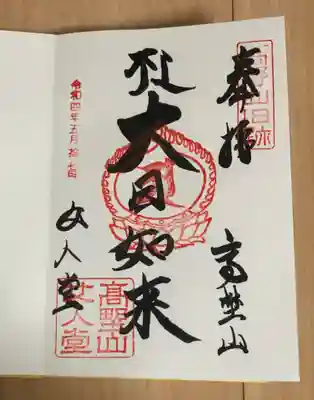 奉拝
高野山
大日如来
令和四年五月拾七日
女人堂
髙野山
女人堂